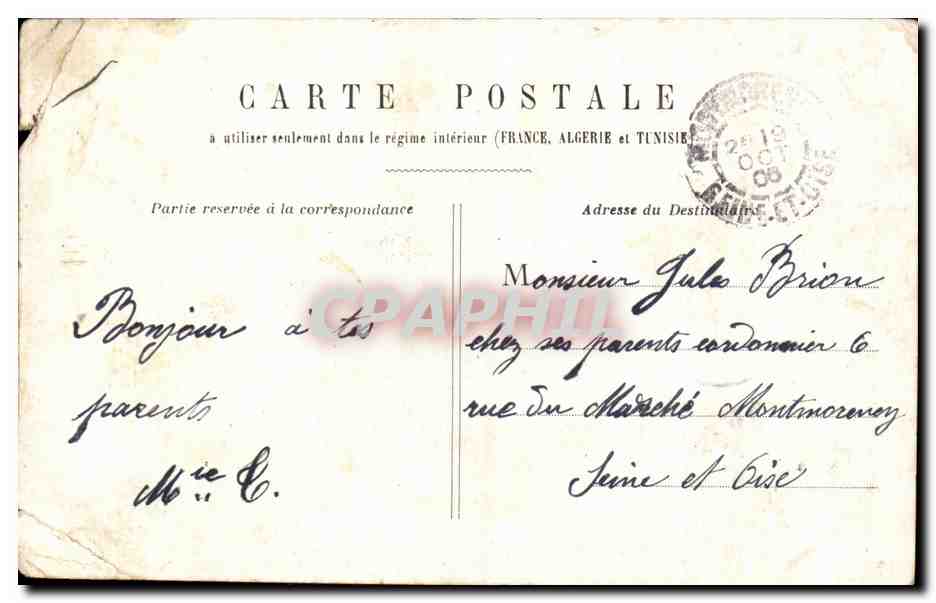 CARTE POSTALE
à utiliser seulement dans le régime intérieur (FRANCE, ALGERIE et TUNISIE
MONTMORENCY
2E 19
OCT
06
SEINE-ET-OISE
Partie reservée à la correspondance
Adresse du Destinataire
Bonjour à tes
parents
Mie E.
Monsieur Jules Brion
chez ses parents cordonnier 6
rue du Marché Montmorency
Seine et Oise
CPAPHIL